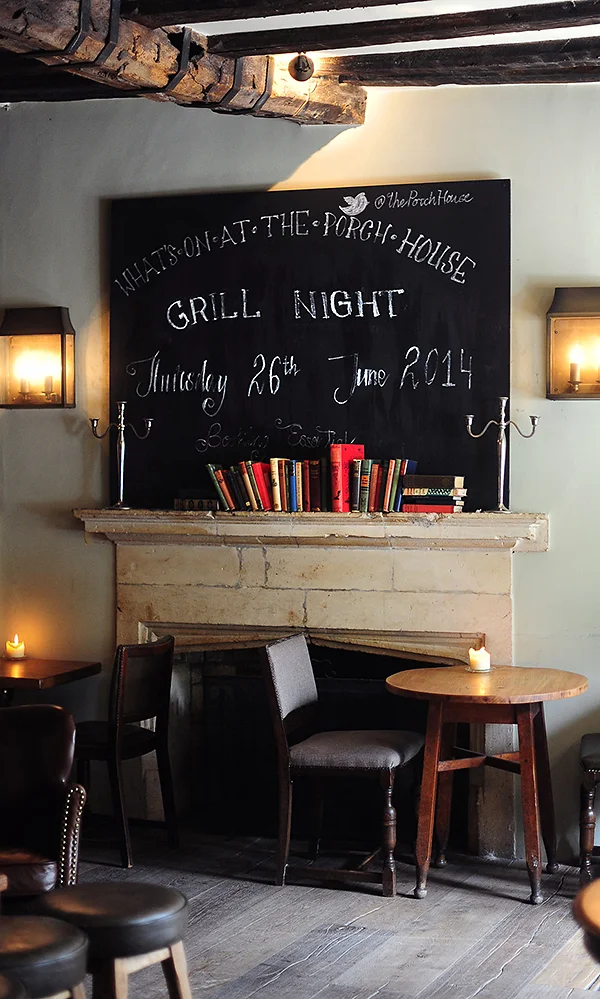 @ThePorchHouse
WHAT'S • ON • AT • THE • PORCH • HOUSE
GRILL NIGHT
Thursday 26th June 2014
Booking Essential